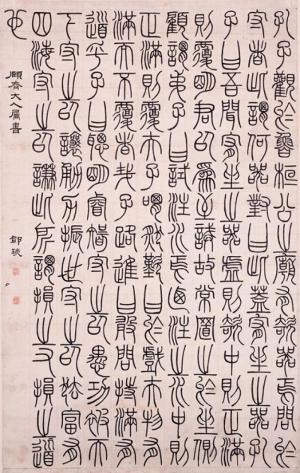 孔子觀於魯桓公之廟有欹器焉問於
守者此謂何器對曰此蓋宥坐之器孔
子曰吾聞宥坐之器虛則欹中則正滿
則覆明君以為至誡故常置之於坐側
顧謂弟子曰試注水焉乃注之水中則
正滿則覆夫子喟然歎曰於戲夫物有
滿而不覆者哉子路進曰敢問持滿有
道乎子曰聰明睿智守之以愚功被天
下守之以讓勇力振世守之以怯富有
四海守之以謙此所謂損之又損之道
也
齋大人屬書
鄧